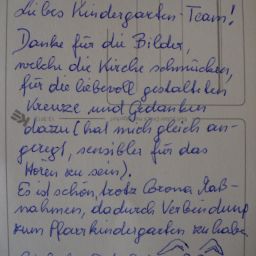 Liebes Kindergarten-Team!
Danke für die Bilder,
welche die Kirche schmücken,
für die liebevoll gestalteten
Kreuze und Gedanken
dazu (hat mich gleich an-
geregt, sensibler für das
Hören zu sein).
Es ist schön, trotz Corona Maß-
nahmen, dadurch Verbindung
zum Pfarrkindergarten zu haben